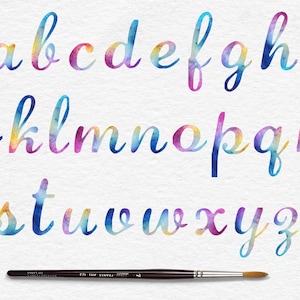 abcdefgh
klmnopq
stuvwxyz